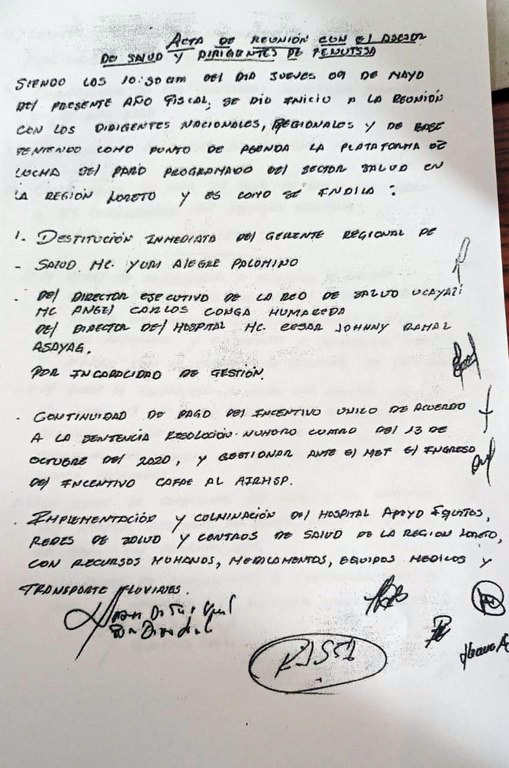 ACTA DE REUNIÓN CON EL ASESOR
DE SALUD Y DIRIGENTES DE FENUTSSA
SIENDO LOS 10:30am DEL DIA JUEVES 09 DE MAYO
DEL PRESENTE AÑO FISCAL, SE DIO INICIO A LA REUNIÓN
CON LOS DIRIGENTES NACIONALES, REGIONALES Y DE BASE
TENIENDO COMO PUNTO DE AGENDA LA PLATAFORMA DE
LUCHA DEL PARO PROGRAMADO DEL SECTOR SALUD EN
LA REGIÓN LORETO Y ES COMO SE INDICA :
1. DESTITUCIÓN INMEDIATA DEL GERENTE REGIONAL DE
- SALUD. MC. YURI ALEGRE PALOMINO
- DEL DIRECTOR EJECUTIVO DE LA RED DE SALUD UCAYALI
MC ANGEL CARLOS CONGA HUMAREDA
DEL DIRECTOR DEL HOSPITAL MC. CESAR JOHNNY RAMAL
ASAYAG.
POR INCAPACIDAD DE GESTIÓN.
- CONTINUIDAD DE PAGO DEL INCENTIVO UNICO DE ACUERDO
A LA SENTENCIA RESOLUCIÓN NUMERO CUATRO DEL 13 DE
OCTUBRE DEL 2020, Y GESTIONAR ANTE EL MEF EL INGRESO
DEL INCENTIVO CAFAE AL AIRHSP.
- IMPLEMENTACIÓN Y CULMINACIÓN DEL HOSPITAL APOYO IQUITOS,
REDES DE SALUD Y CENTROS DE SALUD DE LA REGION LORETO,
CON RECURSOS HUMANOS, MEDICAMENTOS, EQUIPOS MEDICOS Y
TRANSPORTE FLUVIALES.